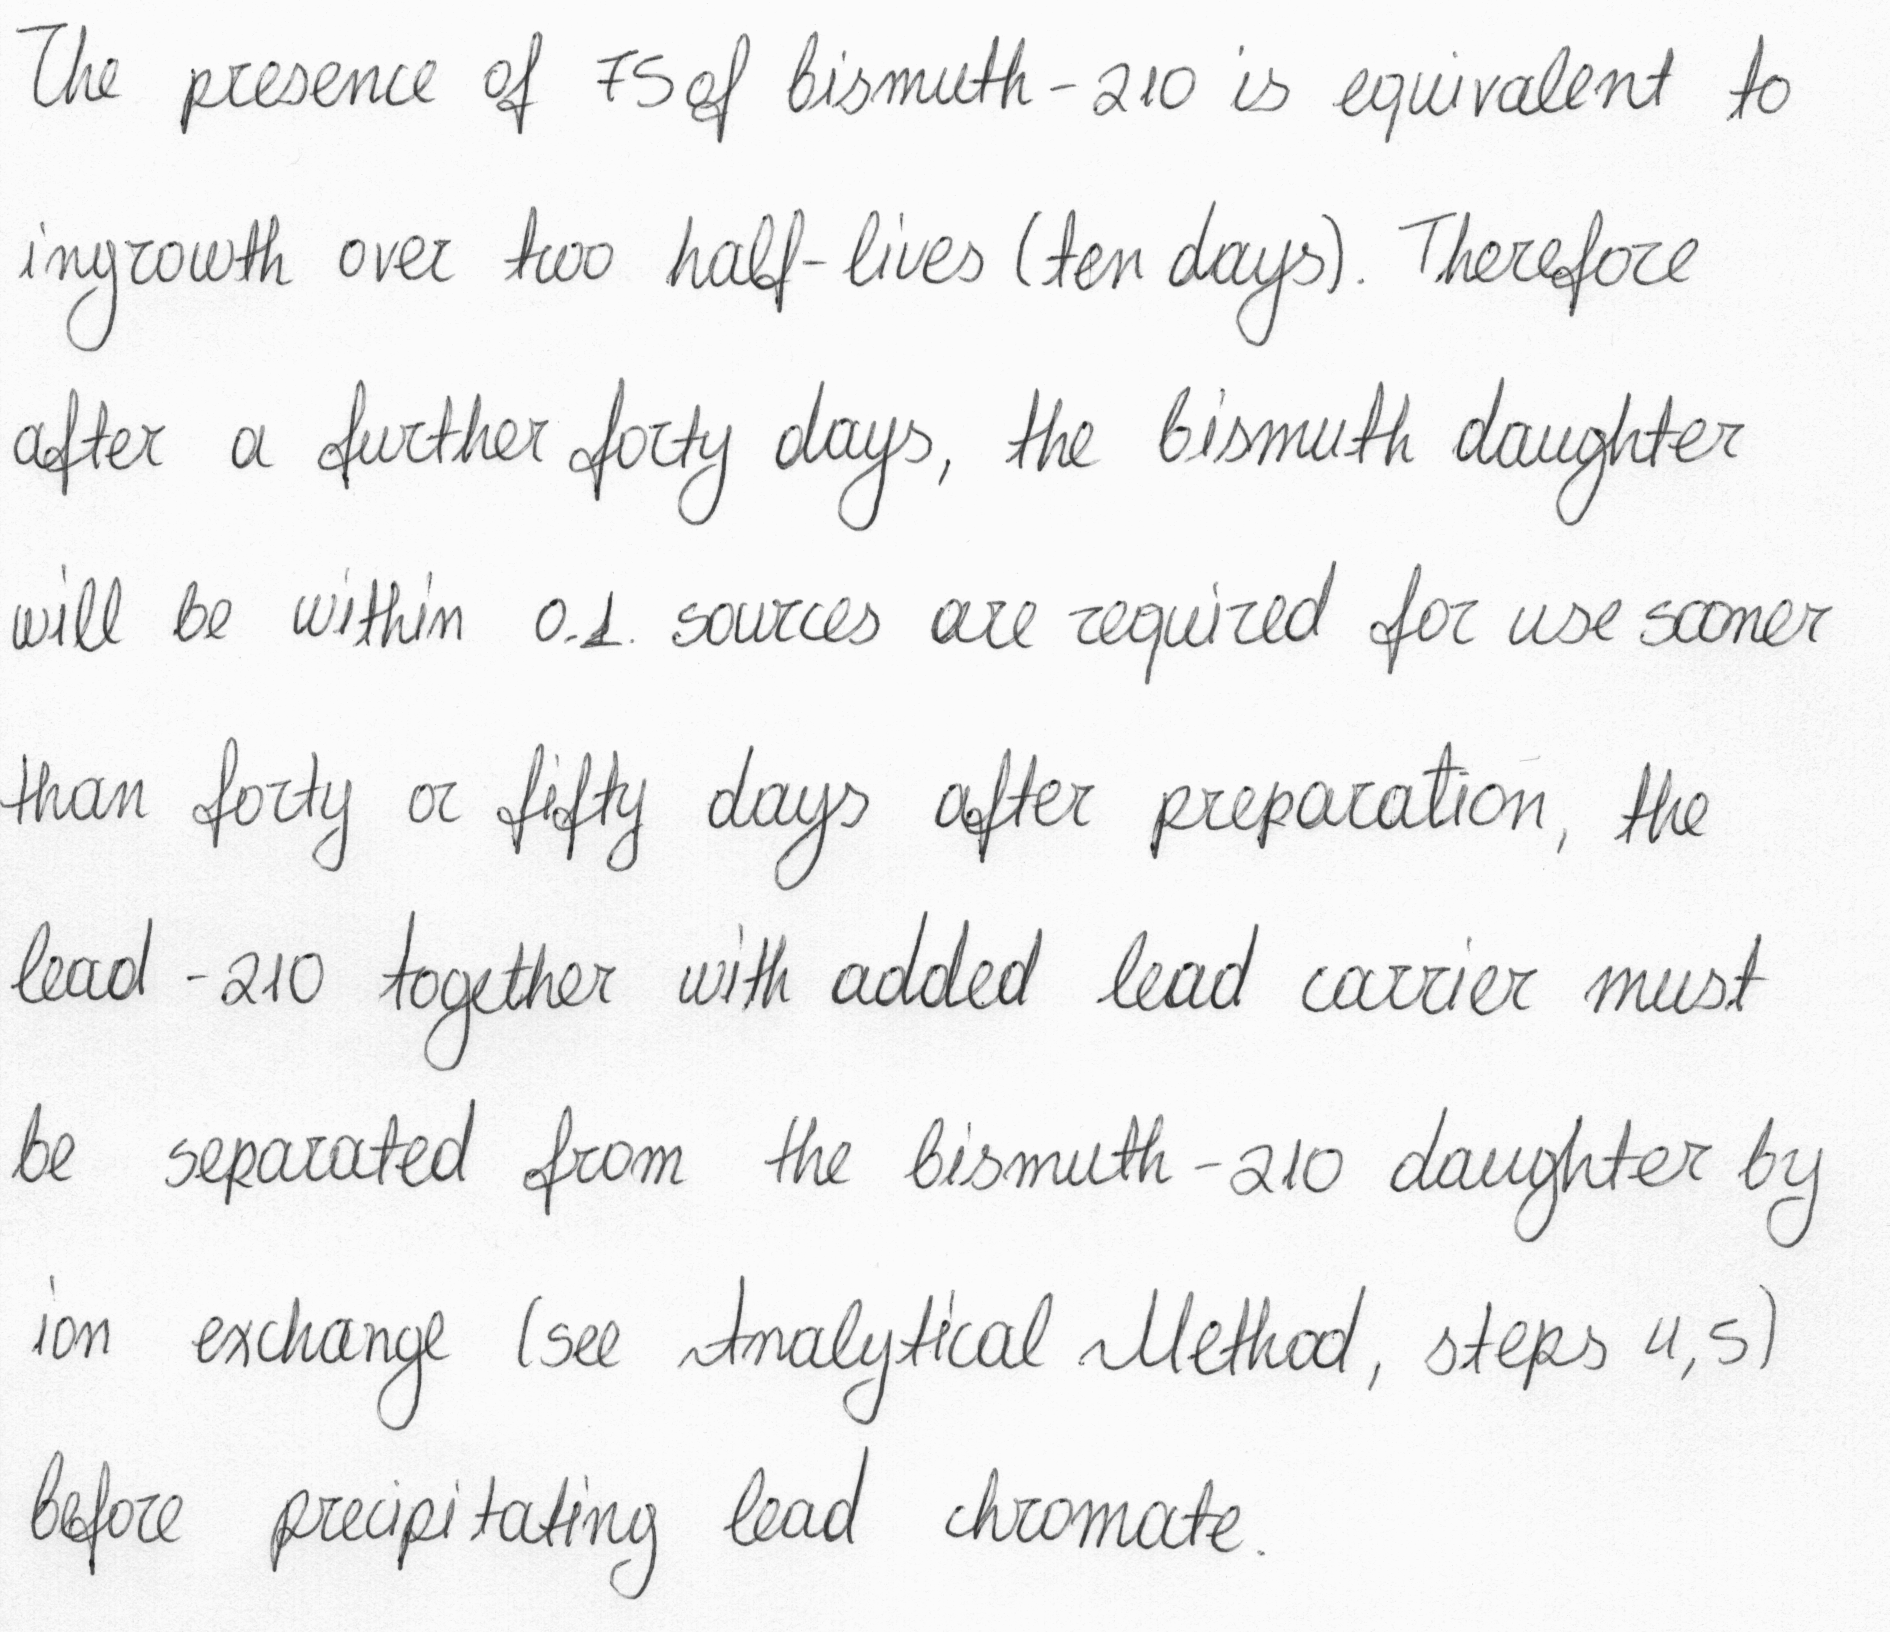 The presence of 75 of bismuth-210 is equivalent to
ingrowth over two half-lives (ten days). Therefore
after a further forty days, the bismuth daughter
will be within 0.1. sources are required for use sooner
than forty or fifty days after preparation, the
lead -210 together with added lead carrier must
be separated from the bismuth-210 daughter by
ion exchange (see Analytical Method, steps 4,5)
before precipitating lead chromate.